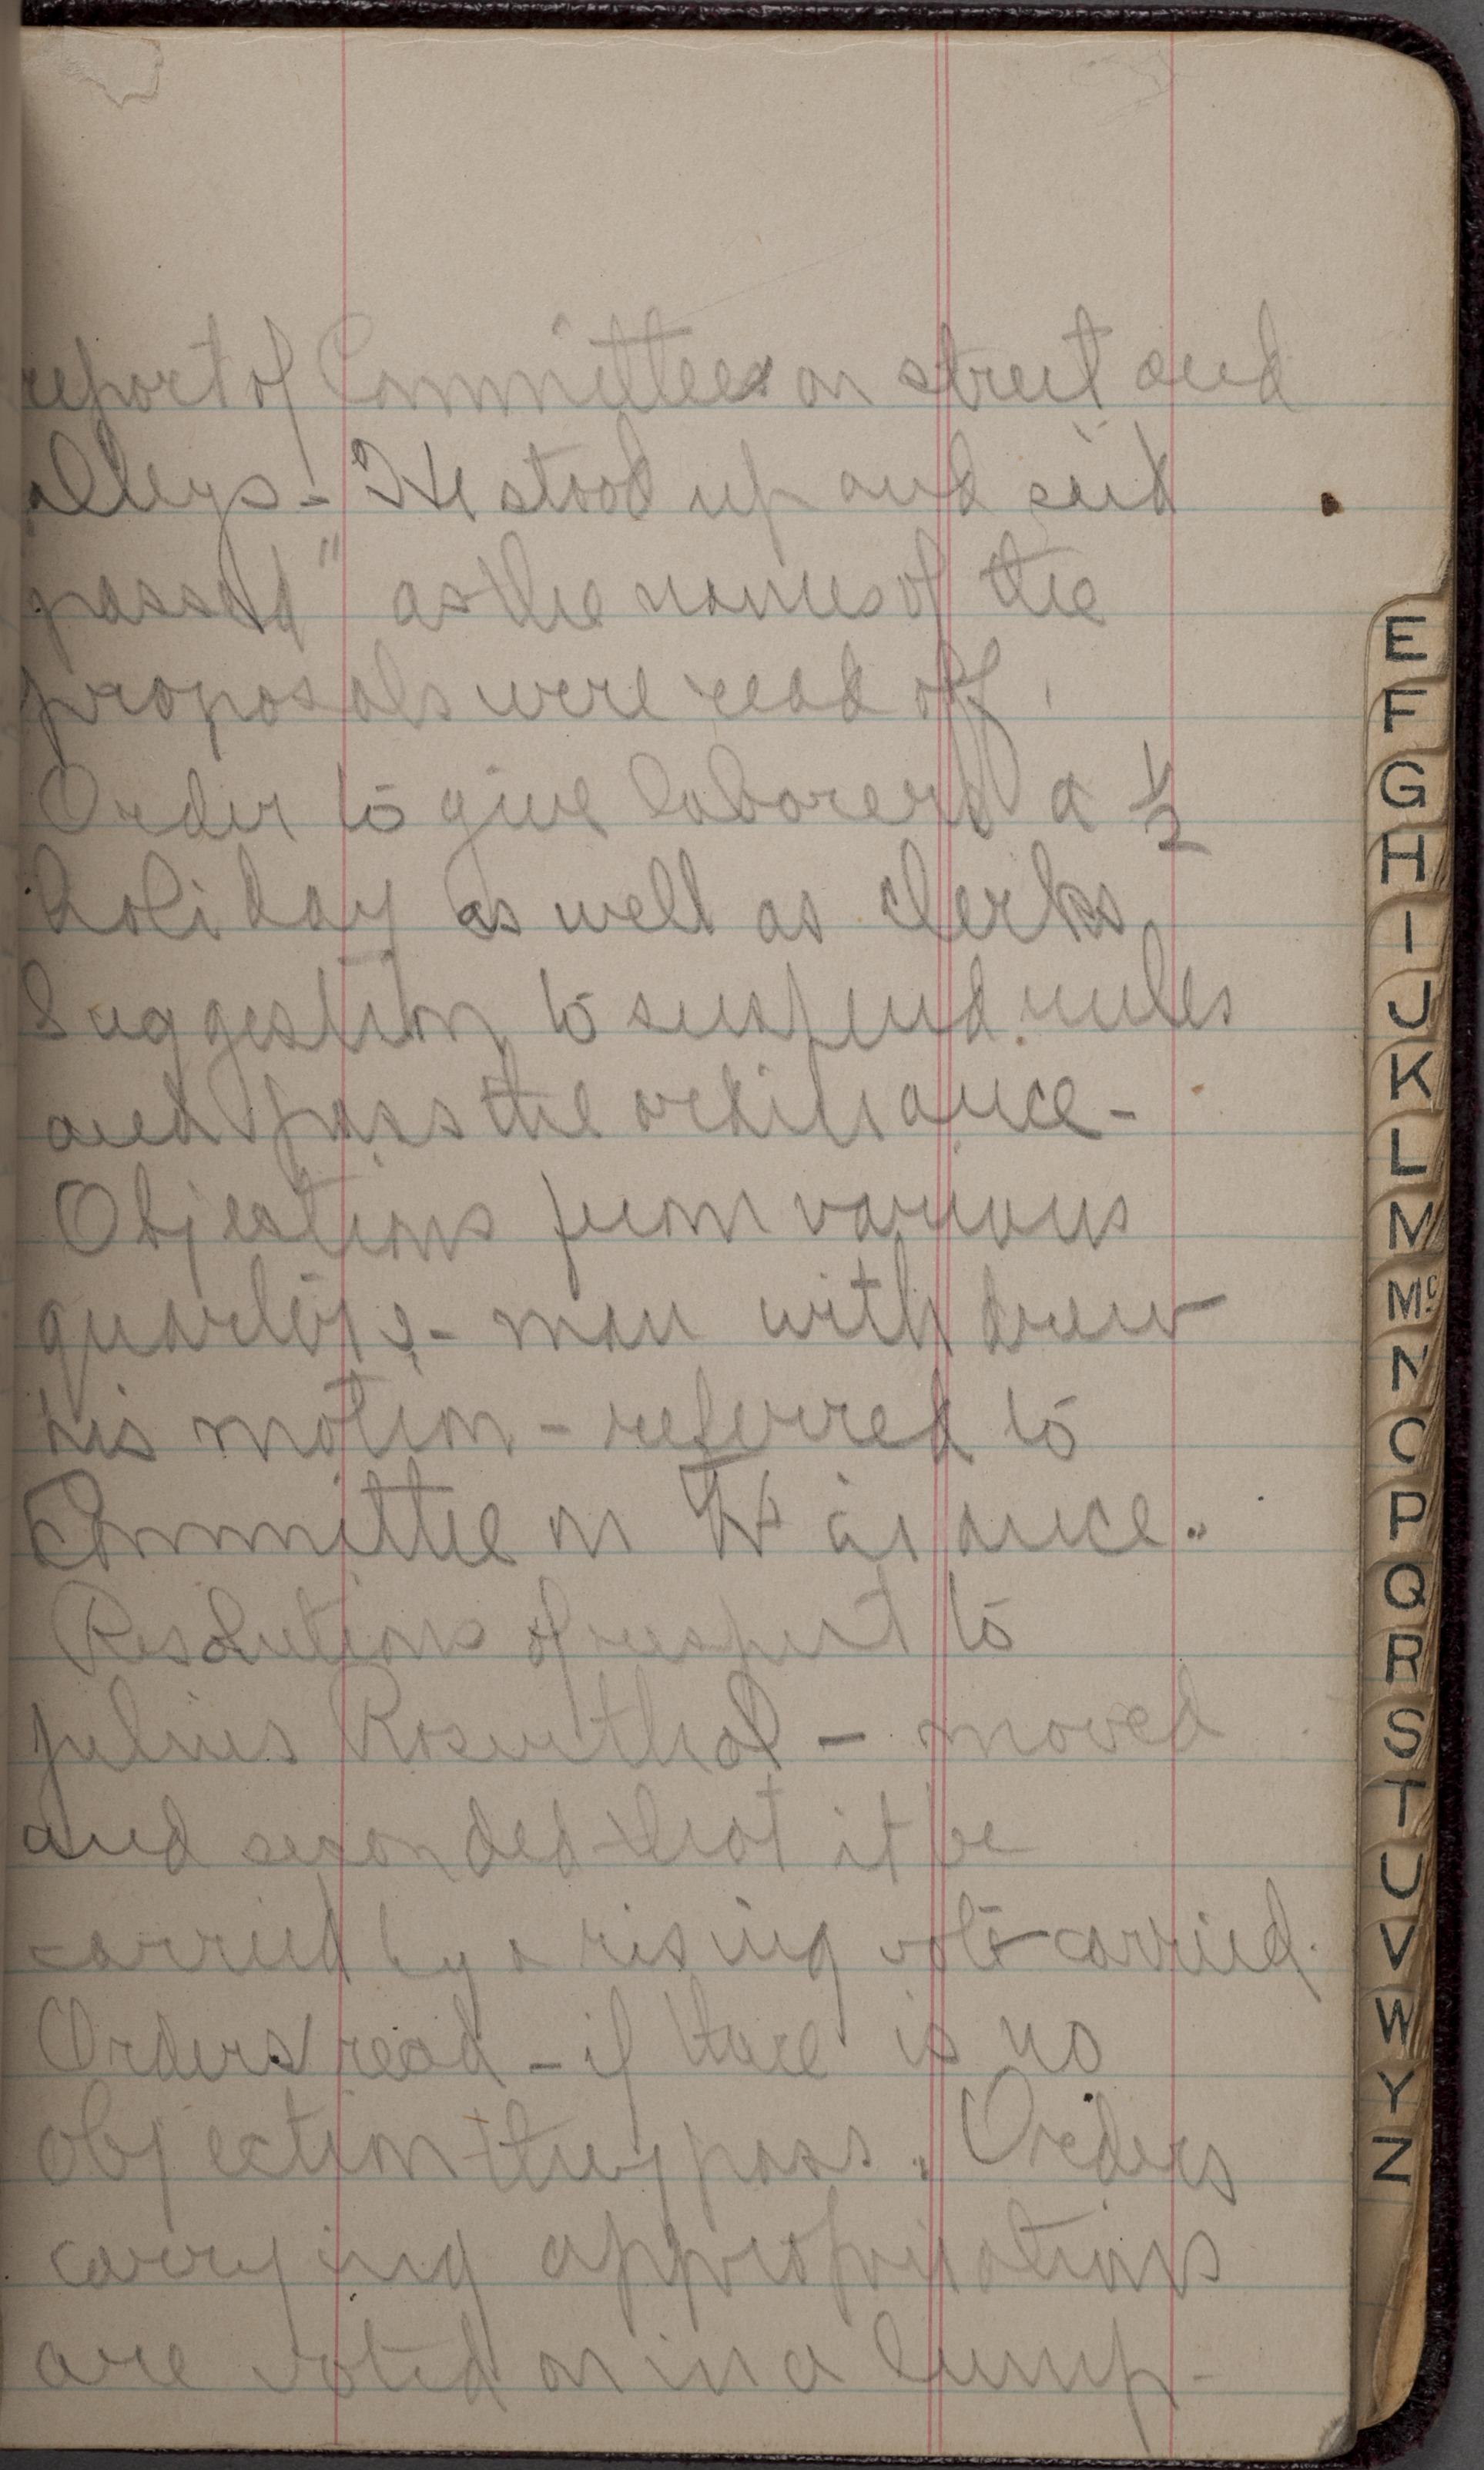 report of Committees on street and
alleys - He stood up and said
passed" as the names of the
proposals were read off.
Order to give laborers a 1/2
holiday as well as clerks
Suggestion to suspend rules
and pass the ordinance -
Objections from various
quarters - man with drew
his motion - referred to
Committee on Finance.
Resolutions of respect to
Julius Rosenthal - moved
and seconded that it be
carried by a rising vote - carried.
Orders read - if there is no
objection they pass. Orders
carrying appropriations
are voted on in a lump -
E
F
G
H
I
J
K
L
M
Mc
N
O
P
Q
R
S
T
U
V
W
Y
Z